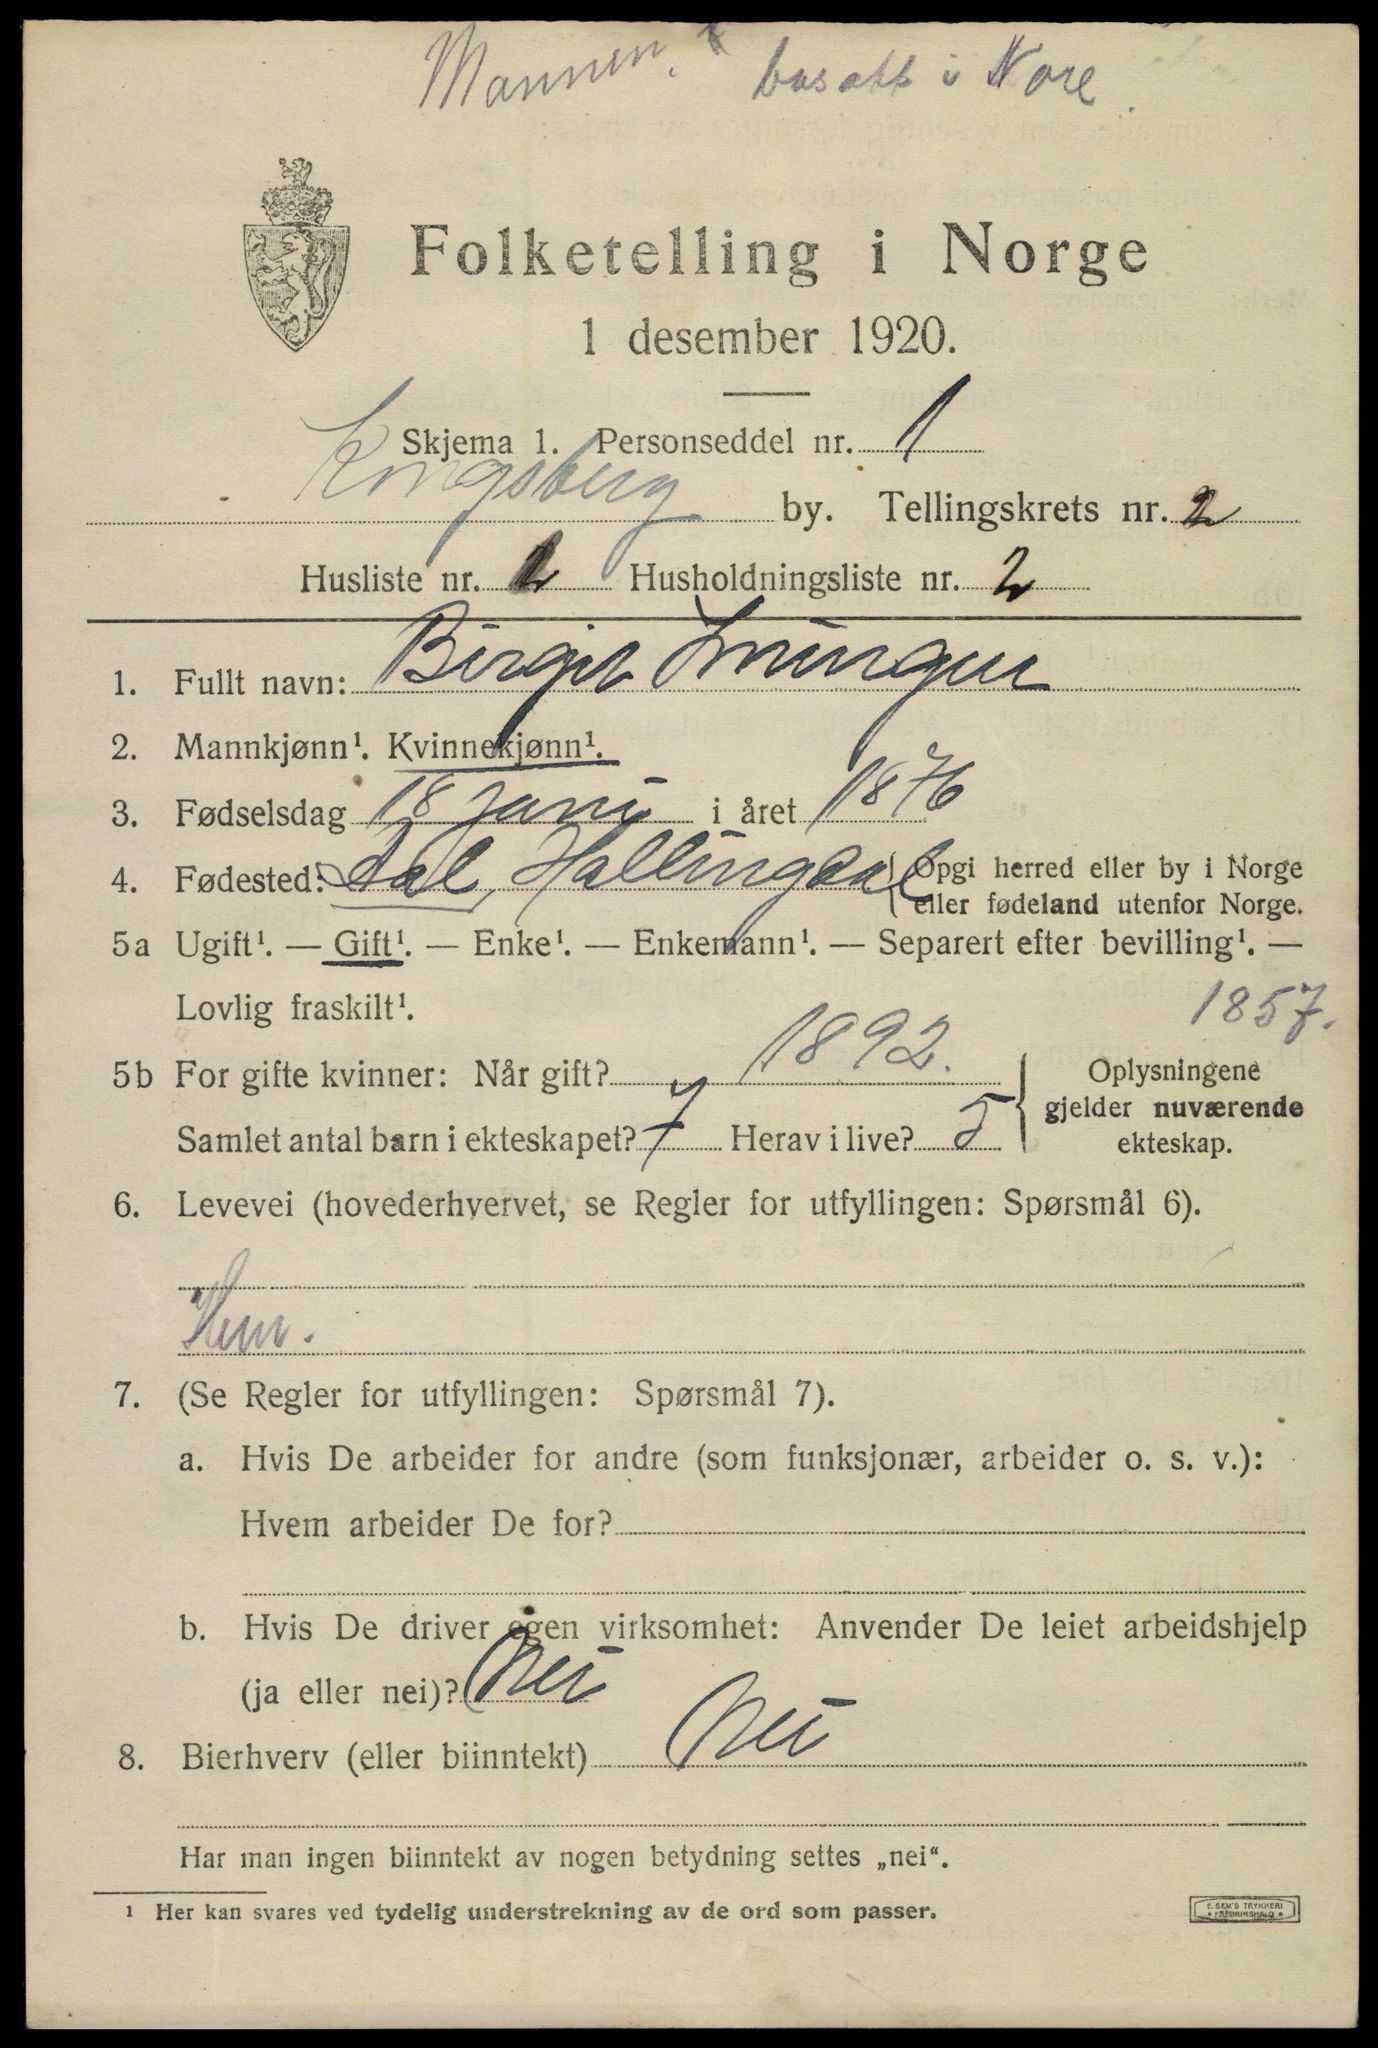 Mannen, bosatt i Nore.
Folketelling i Norge
1 desember 1920.
Skjema 1. Personseddel nr. 1
Kongsberg by. Tellingskrets nr. 2
Husliste nr. 2 Husholdningsliste nr. 2
1. Fullt navn: Birgit
2. Mannkjønn¹. Kvinnekjønn¹.
3. Fødselsdag 18 juni i året 1876
4. Fødested: Aal, Hallingdal { Opgi herred eller by i Norge
eller fødeland utenfor Norge.
5a Ugift¹. — Gift¹. — Enke¹. — Enkemann¹. — Separert efter bevilling¹. —
Lovlig fraskilt¹.
1857.
5b For gifte kvinner: Når gift? 1892.
Samlet antal barn i ekteskapet? 7 Herav i live? 5
Oplysningene
gjelder nuværende
ekteskap.
6. Levevei (hovederhvervet, se Regler for utfyllingen: Spørsmål 6).
7. (Se Regler for utfyllingen: Spørsmål 7).
a. Hvis De arbeider for andre (som funksjonær, arbeider o. s. v.):
Hvem arbeider De for?
b. Hvis De driver egen virksomhet: Anvender De leiet arbeidshjelp
(ja eller nei)? Nei
8. Bierhverv (eller biinntekt) Nei
Har man ingen biinntekt av nogen betydning settes „nei“.
¹ Her kan svares ved tydelig understrekning av de ord som passer.
E. SEM'S TRYKKERI
FREDRIKSHALD